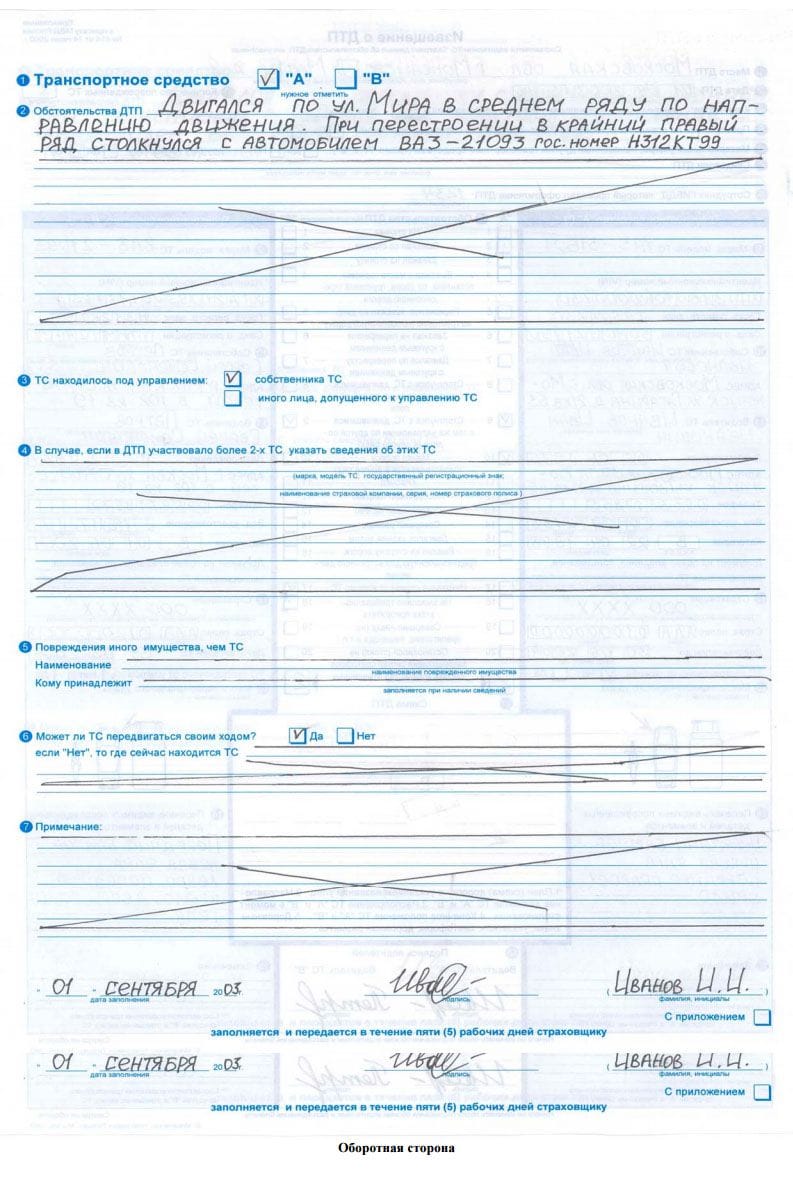 1 Транспортное средство "А" "В"
нужное отметить
2 Обстоятельства ДТП Двигался по ул. Мира в среднем ряду по нап-
равлению движения. При перестроении в крайний правый
ряд столкнулся с автомобилем ВАЗ-21093 гос. номер Н312КТ99
3 ТС находилось под управлением: собственника ТС
иного лица, допущенного к управлению ТС
4 В случае, если в ДТП участвовало более 2-х ТС, указать сведения об этих ТС
(марка, модель ТС, государственный регистрационный знак;
наименование страховой компании, серия, номер страхового полиса )
5 Повреждения иного имущества, чем ТС
Наименование
наименование поврежденного имущества
Кому принадлежит
заполняется при наличии сведений
6 Может ли ТС передвигаться своим ходом? Да Нет
если "Нет", то где сейчас находится ТС
7 Примечание:
" 01 " сентября 2003г. (Иванов И.И.)
дата заполнения подпись фамилия, инициалы
С приложением
заполняется и передается в течение пяти (5) рабочих дней страховщику
" 01 " сентября 2003г. (Иванов И.И.)
дата заполнения подпись фамилия, инициалы
С приложением
заполняется и передается в течение пяти (5) рабочих дней страховщику
Оборотная сторона